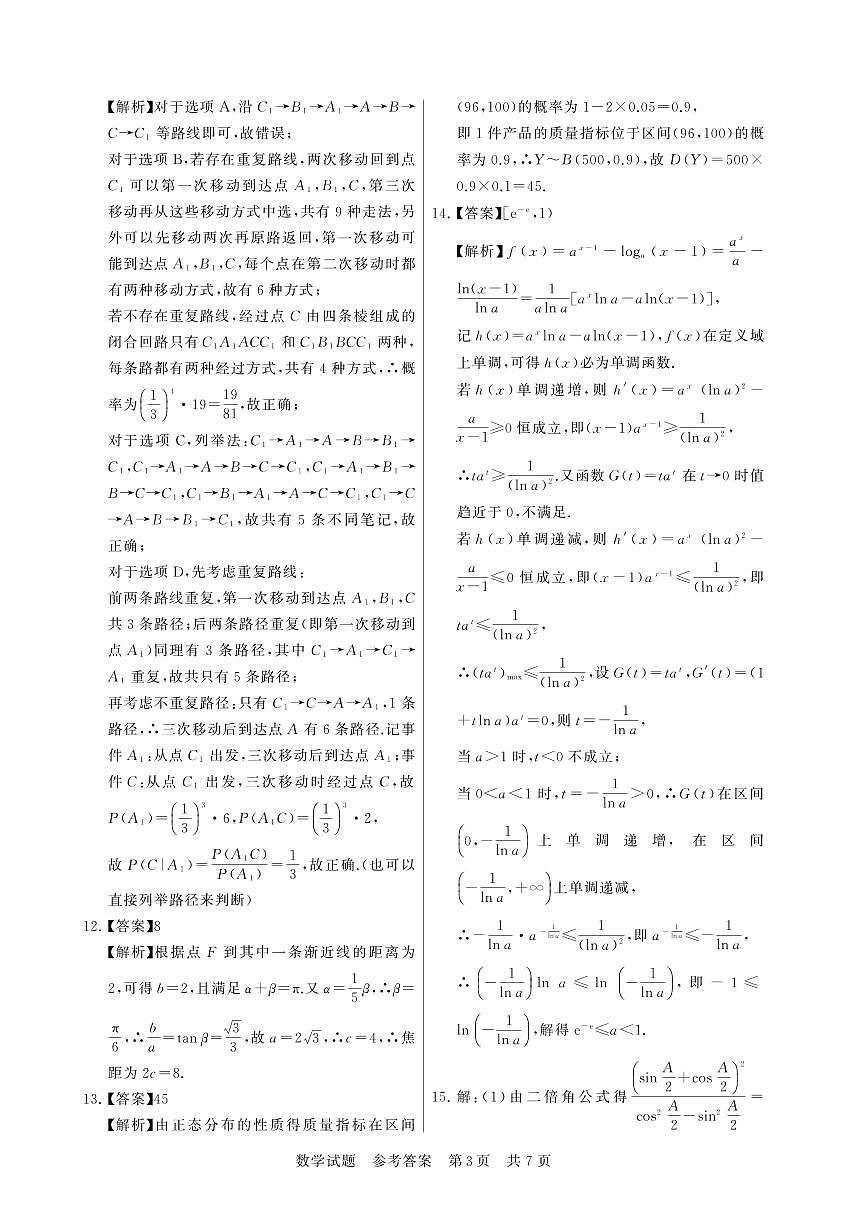 【解析】对于选项 A,沿 C₁→B₁→A₁→A→B→
C→C₁ 等路线即可,故错误;
对于选项 B,若存在重复路线,两次移动回到点
C₁ 可以第一次移动到达点 A₁,B₁,C,第三次
移动再从这些移动方式中选,共有 9 种走法,另
外可以先移动两次再原路返回,第一次移动可
能到达点 A₁,B₁,C,每个点在第二次移动时都
有两种移动方式,故有 6 种方式;
若不存在重复路线,经过点 C 由四条棱组成的
闭合回路只有 C₁A₁ACC₁ 和 C₁B₁BCC₁ 两种,
每条路都有两种经过方式,共有 4 种方式,∴概
率为(1/3)⁴·19=19/81,故正确;
对于选项 C,列举法:C₁→A₁→A→B→B₁→
C₁,C₁→A₁→A→B→C→C₁,C₁→A₁→B₁→
B→C→C₁,C₁→B₁→A₁→A→C→C₁,C₁→C
→A→B→B₁→C₁,故共有 5 条不同笔记,故
正确;
对于选项 D,先考虑重复路线:
前两条路线重复,第一次移动到达点 A₁,B₁,C
共 3 条路径;后两条路径重复(即第一次移动到
点 A₁)同理有 3 条路径,其中 C₁→A₁→C₁→
A₁ 重复,故共只有 5 条路径;
再考虑不重复路径:只有 C₁→C→A→A₁,1 条
路径,∴三次移动后到达点 A 有 6 条路径.记事
件 A₁:从点 C₁ 出发,三次移动后到达点 A₁;事
件 C:从点 C₁ 出发,三次移动时经过点 C,故
P(A₁)=(1/3)³·6,P(A₁C)=(1/3)³·2,
故 P(C|A₁)=P(A₁C)/P(A₁)=1/3,故正确.(也可以
直接列举路径来判断)
12.【答案】8
【解析】根据点 F 到其中一条渐近线的距离为
2,可得 b=2,且满足 α+β=π.又 α=1/5β,∴β=
π/6,∴b/a=tan β=√3/3,故 a=2√3,∴c=4,∴焦
距为 2c=8.
13.【答案】45
【解析】由正态分布的性质得质量指标在区间
(96,100)的概率为 1-2×0.05=0.9,
即 1 件产品的质量指标位于区间(96,100)的概
率为 0.9,∴Y~B(500,0.9),故 D(Y)=500×
0.9×0.1=45.
14.【答案】[e⁻ᵉ,1)
【解析】f(x)=aˣ⁻¹-logₐ(x-1)=aˣ/a-
ln(x-1)/ln a=1/(aln a)[aˣln a-aln(x-1)],
记 h(x)=aˣln a-aln(x-1),f(x)在定义域
上单调,可得 h(x)必为单调函数.
若 h(x)单调递增,则 h′(x)=aˣ(ln a)²-
a/(x-1)≥0 恒成立,即(x-1)aˣ⁻¹≥1/(ln a)²,
∴taᵗ≥1/(ln a)².又函数 G(t)=taᵗ 在 t→0 时值
趋近于 0,不满足.
若 h(x)单调递减,则 h′(x)=aˣ(ln a)²-
a/(x-1)≤0 恒成立,即(x-1)aˣ⁻¹≤1/(ln a)²,即
taᵗ≤1/(ln a)²,
∴(taᵗ)max≤1/(ln a)²,设 G(t)=taᵗ,G′(t)=(1
+tln a)aᵗ=0,则 t=-1/ln a,
当 a>1 时,t<0 不成立;
当 0<a<1 时,t=-1/ln a>0,∴G(t)在区间
(0,-1/ln a)上单调递增,在区间
(-1/ln a,+∞)上单调递减,
∴-1/ln a·a^(-1/ln a)≤1/(ln a)²,即 a^(-1/ln a)≤-1/ln a,
∴(-1/ln a)ln a≤ln(-1/ln a),即-1≤
ln(-1/ln a),解得 e⁻ᵉ≤a<1.
15. 解:(1)由二倍角公式得(sin A/2+cos A/2)²/(cos² A/2-sin² A/2)=
数学试题 参考答案 第 3 页 共 7 页